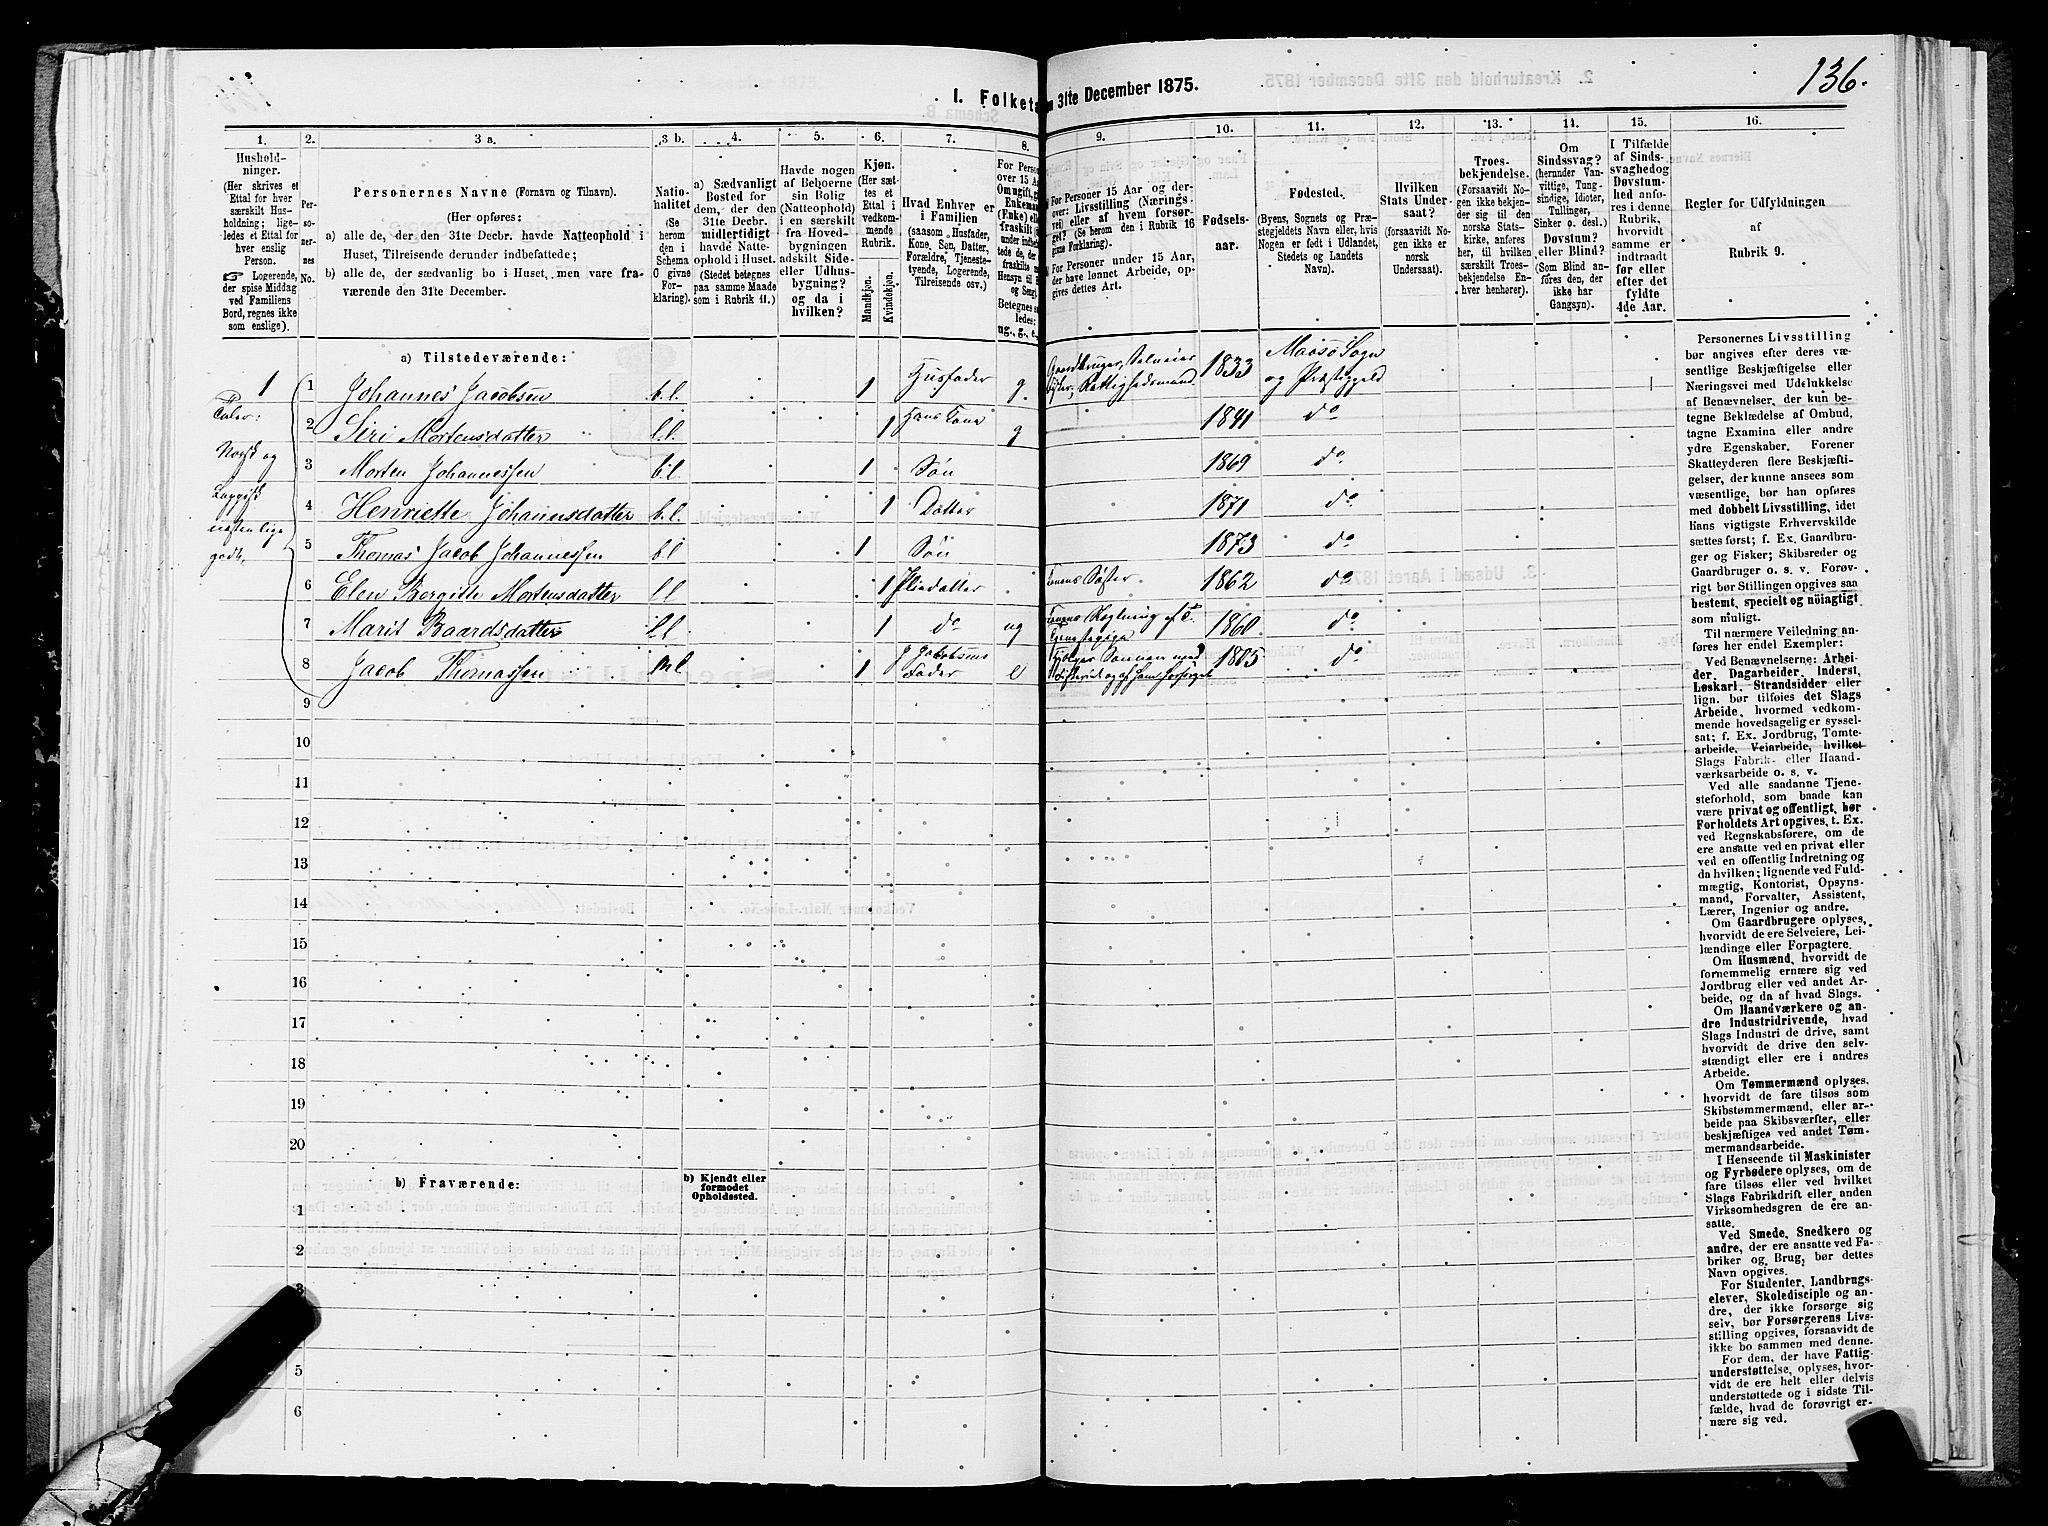 136.
I. Folket
n 31te December 1875.
1.
2.
3 a.
3 b.
4.
5.
6.
7.
8.
9.
10.
11.
12.
13.
14.
15.
16.
Hushold-
ninger.
(Her skrives et
Ettal for hver
særskilt Hus-
holdning; lige-
ledes et Ettal for
hver enslig
Person.
☞ Logerende,
der spise Middag
ved Familiens
Bord, regnes ikke
som enslige).
Per-
so-
ner-
nes
No.
Personernes Navne (Fornavn og Tilnavn).
(Her opføres:
a) alle de, der den 31te Decbr. havde Natteophold i
Huset, Tilreisende derunder indbefattede;
b) alle de, der sædvanlig bo i Huset, men vare fra-
værende den 31te December.
Natio-
nalitet
(Se
herom
den i
Schema
C givne
For-
klaring).
a) Sædvanligt
Bosted for
dem, der den
31te Decbr.
midlertidigt
havde Natte-
ophold i Huset.
(Stedet betegnes
paa samme Maade
som i Rubrik 11.)
Havde nogen
af Beboerne
sin Bolig
(Natteophold)
i en særskilt
fra Hoved-
bygningen
adskilt Side-
eller Udhus-
bygning?
og da i
hvilken?
Kjøn.
(Her sæt-
tes et
Ettal i
vedkom-
mende
Rubrik.
Mandkjøn.
Kvindekjøn.
Hvad Enhver er
i Familien
(saasom Husfader,
Kone, Søn, Datter,
Forældre, Tjeneste-
tyende, Logerende,
Tilreisende osv.)
For Person
over 15 A
Om ugift, g
Enkeman
(Enke) elle
fraskilt
Betegnes s
ledes:
ug., g., e.
For Personer 15 Aar og der-
over: Livsstilling (Nærings-
vei) eller af hvem forsør-
get? (Se herom den i Rubrik 16
givne Forklaring).
For Personer under 15 Aar,
der have lønnet Arbeide, op-
gives dettes Art.
Fødsels-
aar.
Fødested.
(Byens, Sognets og Præ-
stegjeldets Navn eller, hvis
Nogen er født i Udlandet,
Stedets og Landets
Navn).
Hvilken
Stats Under-
saat?
(forsaavidt No-
gen ikke er
norsk
Undersaat).
Troes-
bekjendelse.
(Forsaavidt No-
gen ikke bekjen-
der sig til den
norske Stats-
kirke, anføres
her, til hvilken
særskilt Troes-
bekjendelse En-
hver henhører).
Om
Sindssvag?
(herunder Van-
vittige, Tung-
sindige, Idioter,
Tullinger,
Sinker o. desl.)
Døvstum?
eller Blind?
(Som Blind an-
føres den, der
ikke har
Gangsyn).
I Tilfælde
af Sinds-
svaghed og
Døvstum-
hed anfø-
res i denne
Rubrik,
hvorvidt
samme er
indtraadt
før eller
efter det
fyldte
4de Aar.
Regler for Udfyldningen
af
Rubrik 9.
a) Tilstedeværende:
1
1 Johannes Jacobsen b.l. 1 Husfader g. Gaardbruger, Selveier Fisker, Rettighedsmand. 1833 Maasø Sogn og Præstegjeld
2 Siri Mortensdatter l.l. 1 Hans Kone g 1841 do
3 Morten Johannessen b.l. 1 Søn 1869 do
4 Henriette Johannsdatter b.l. 1 Datter 1871 do
5 Thomas Jacob Johannessen b.l 1 Søn 1873 do
6 Elen Bergitte Mortensdatter l.l 1 Pleiedatter Konens Søster 1862 do
7 Marit Baardsdatter l.l 1 do ug Tjenestepige 1860 do
8 Jacob Thomassen m.l 1 J. Jacobsens Fader e Hjelper Sønnen med Fiskeriet og af ham forsørget 1805 do
Taler:
Norsk og
Lappisk
næsten lige
godt.
9
10
11
12
13
14
15
16
17
18
19
20
b) Fraværende:
b) Kjendt eller
formodet
Opholdssted.
1
2
3
5
6
Personernes Livsstilling
bør angives efter deres væ-
sentlige Beskjæftigelse eller
Næringsvei med Udelukkelse
af Benævnelser, der kun be-
tegne Beklædelse af Ombud,
tagne Examina eller andre
ydre Egenskaber. Forener
Skatteyderen flere Beskjæfti-
gelser, der kunne ansees som
væsentlige, bør han opføres
med dobbelt Livsstilling, idet
hans vigtigste Erhvervskilde
sættes først; f. Ex. Gaardbru-
ger og Fisker; Skibsreder og
Gaardbruger o. s. v. Forøv-
rigt bør Stillingen opgives saa
bestemt, specielt og nöiagtigt
som muligt.
Til nærmere Veiledning an-
føres her endel Exempler:
Ved Benævnelserne: Arbei-
der, Dagarbeider, Inderst,
Løskarl, Strandsidder eller
lign. bør tilføies det Slags
Arbeide, hvormed vedkom-
mende hovedsagelig er syssel-
sat; f. Ex. Jordbrug, Tomte-
arbeide, Veiarbeide, hvilket
Slags Fabrik- eller Haand-
værksarbeide o. s. v.
Ved alle saadanne Tjene-
steforhold, som baade kan
være privat og offentligt, bør
Forholdets Art opgives, t. Ex.
ved Regnskabsførere, om de
ere ansatte ved en privat eller
ved en offentlig Indretning og
da hvilken; lignende ved Fuld-
mægtig, Kontorist, Opsyns-
mand, Forvalter, Assistent,
Lærer, Ingeniør og andre.
Om Gaardbrugere oplyses,
hvorvidt de ere Selveiere, Lei-
lændinge eller Forpagtere.
Om Husmænd, hvorvidt de
fornemmelig ernære sig ved
Jordbrug eller ved andet Ar-
beide, og da af hvad Slags.
Om Haandværkere og an-
dre Industridrivende, hvad
Slags Industri de drive, samt
hvorvidt de drive den selv-
stændigt eller ere i andres
Arbeide.
Om Tømmermænd oplyses,
hvorvidt de fare tilsøs som
Skibstømmermænd, eller ar-
beide paa Skibsværfter, eller
beskjæftiges ved andet Tøm-
mermandsarbeide.
I Henseende til Maskinister
og Fyrbødere oplyses, om de
fare tilsøs eller ved hvilket
Slags Fabrikdrift eller anden
Virksomhedsgren de ere an-
satte.
Ved Smede, Snedkere og
andre, der ere ansatte ved Fa-
briker og Brug, bør dettes
Navn opgives.
For Studenter, Landbrugs-
elever, Skoledisciple og an-
dre, der ikke forsørge sig
selv, bør Forsørgerens Livs-
stilling opgives, forsaavidt de
ikke bo sammen med denne.
For dem, der have Fattig-
understøttelse, oplyses, hvor-
vidt de ere helt eller delvis
understøttede og i sidste Til-
fælde, hvad de forøvrigt er-
nære sig ved.